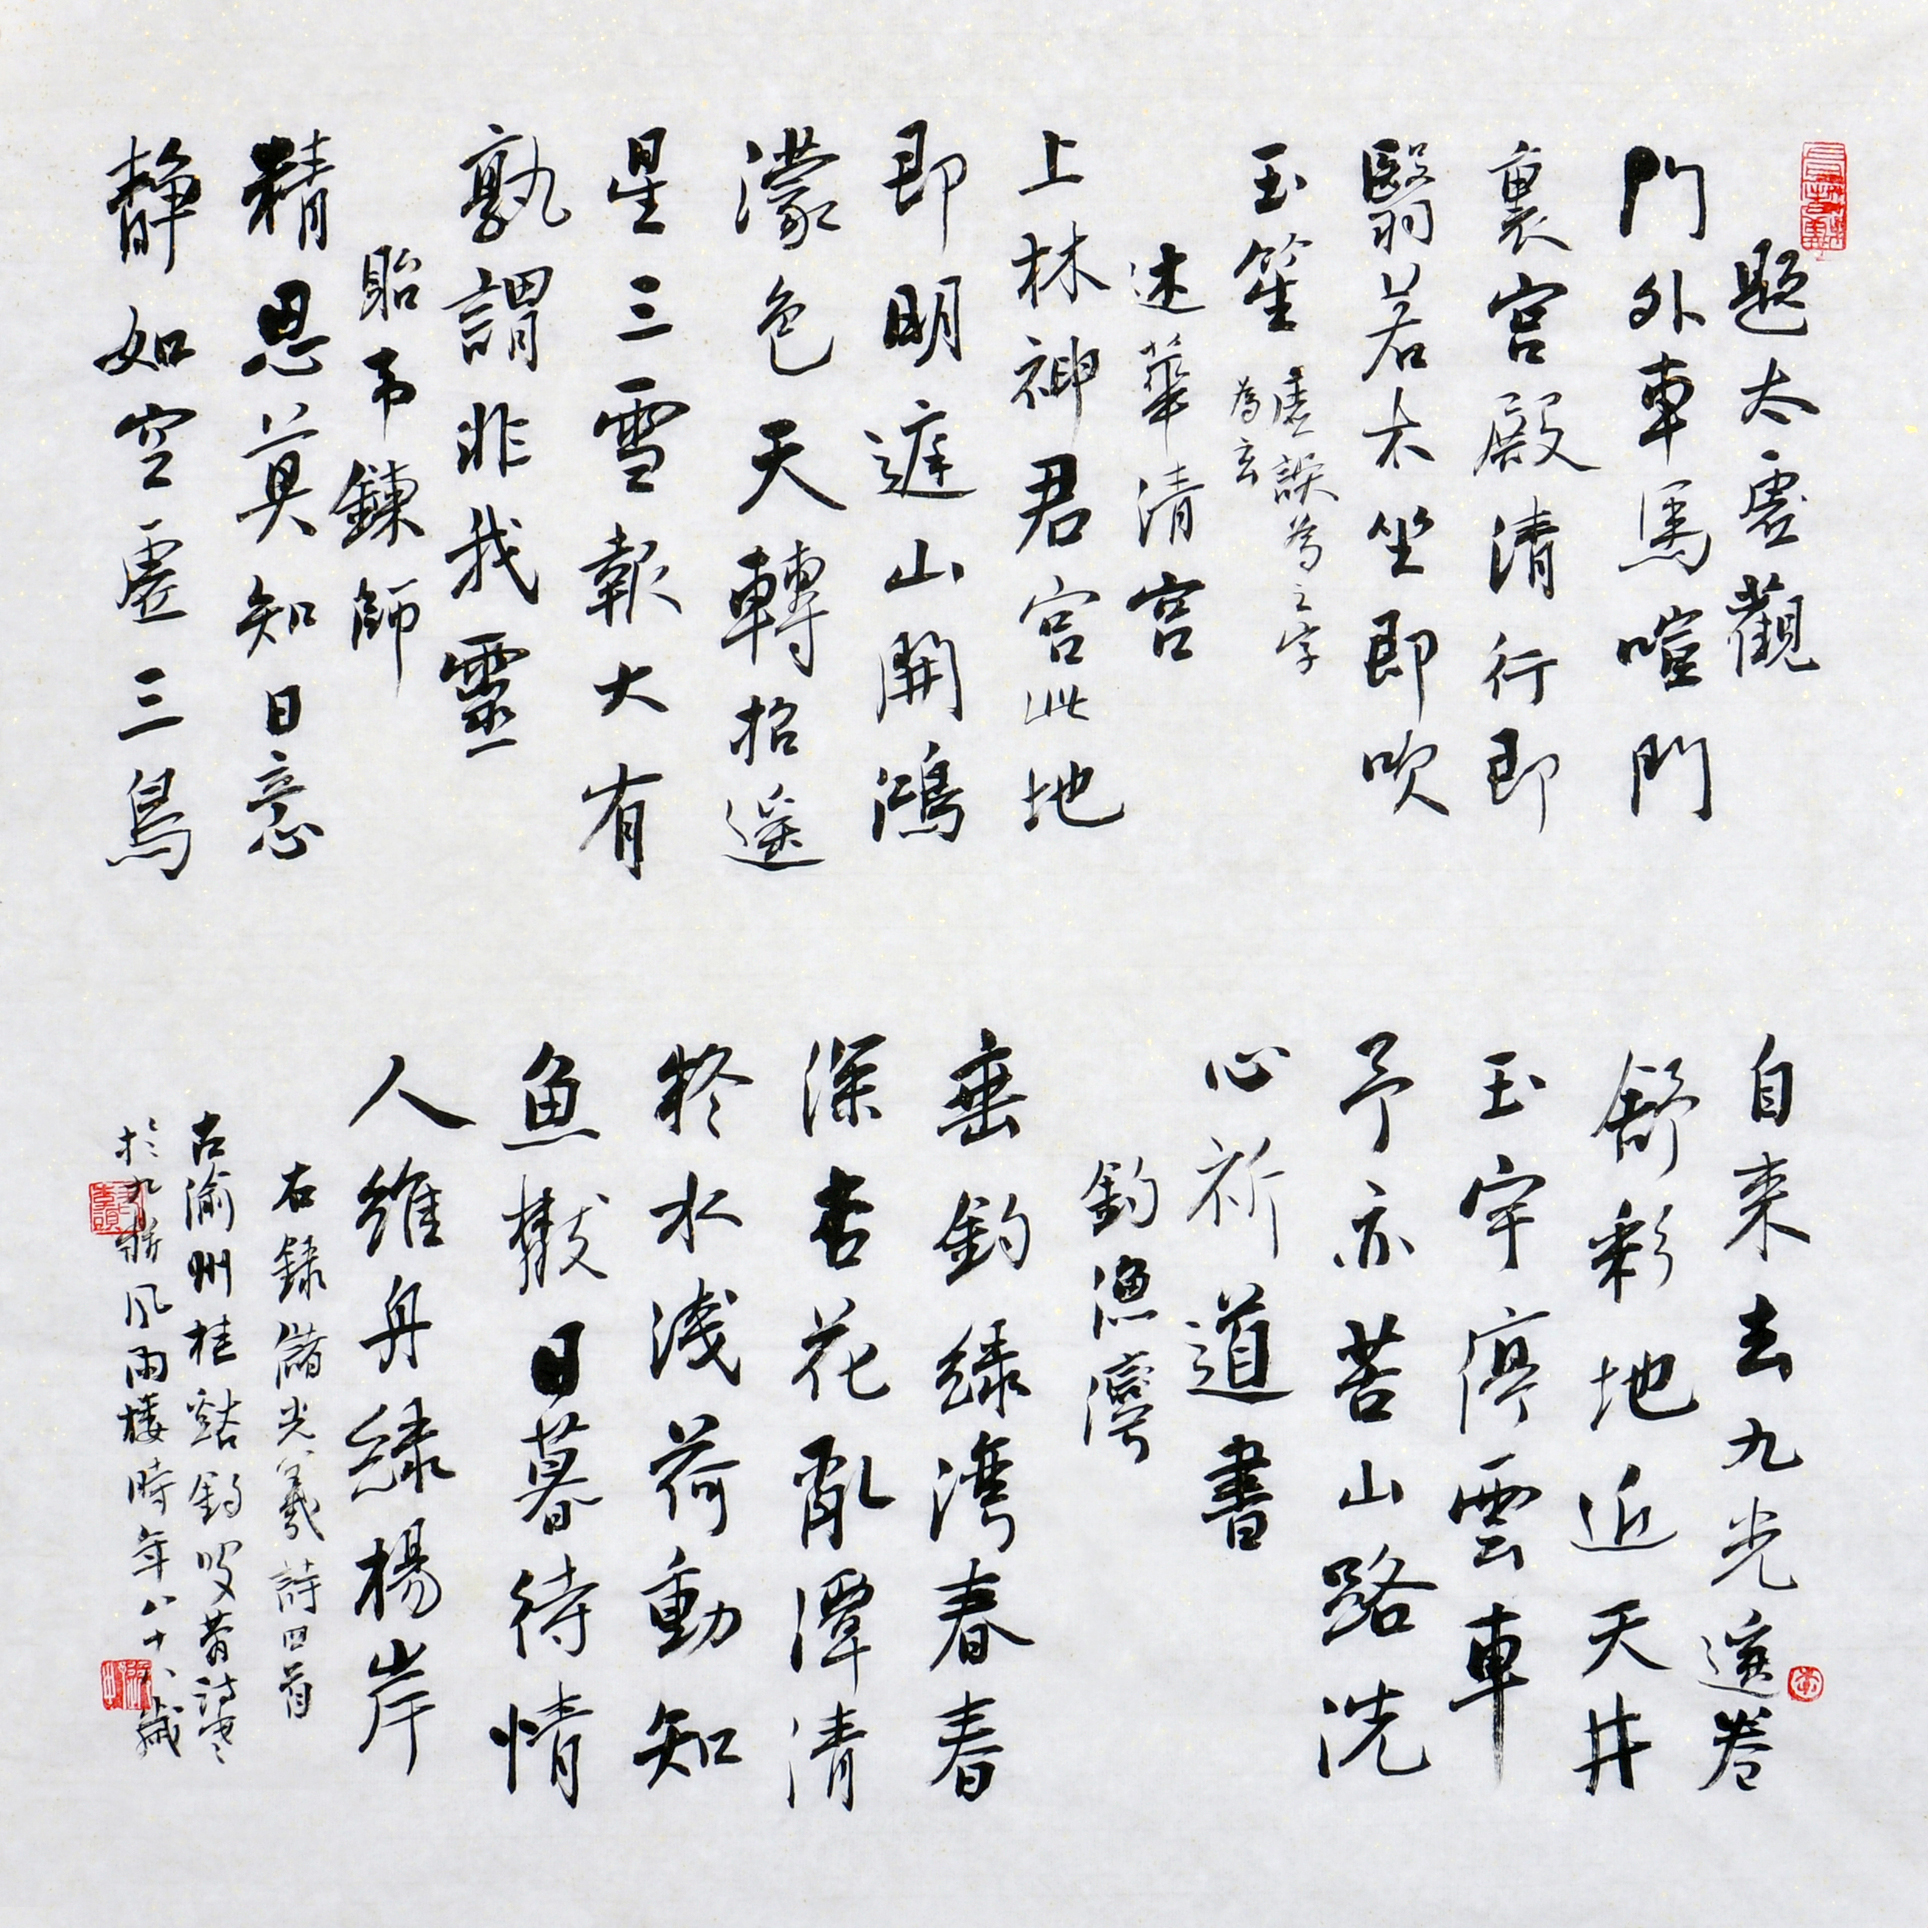 題太虛觀
門外車馬喧門
裏宮殿清行即
翳若木坐即吹
玉笙 虛誤為之字
為玄
述華清宮
上林神君宮此地
即明庭山開鴻
濛色天轉招遙
星三雪報大有
孰謂非我靈
貽示鍊師
精思莫知日意
靜如空虛三鳥
自來去九光遙卷
舒彩地近天井
玉宇停雲車
予亦苦山路洗
心祈道書
釣漁灣
垂釣綠灣春春
深杏花亂潭清
疑水淺荷動知
魚散日暮待情
人維舟綠楊岸
右錄儲光羲詩四首
古渝州桂谿釣叟書
於九 風雨樓時年八十八歲